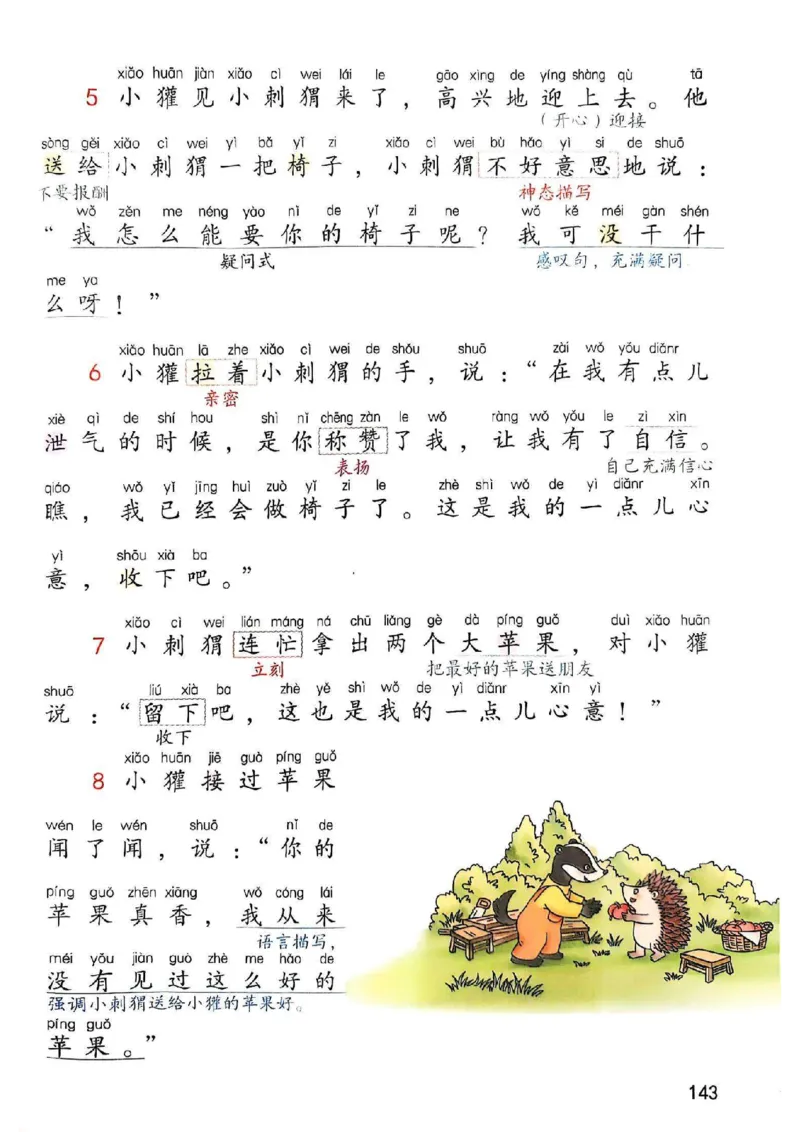 xiǎo huān jiàn xiǎo cì wei lái le gāo xìng de yíng shàng qù tā
5 小獾见小刺猬来了，高兴地迎上去。他
（开心）迎接
sòng gěi xiǎo cì wei yì bǎ yǐ zi xiǎo cì wei bù hǎo yì si de shuō
送给小刺猬一把椅子，小刺猬不好意思地说：
不要报酬 神态描写
wǒ zěn me néng yào nǐ de yǐ zi ne wǒ kě méi gàn shén
“我怎么能要你的椅子呢？我可没干什
疑问式 感叹句，充满疑问
me ya
么呀！”
xiǎo huān lā zhe xiǎo cì wei de shǒu shuō zài wǒ yǒu diǎnr
6 小獾拉着小刺猬的手，说：“在我有点儿
亲密
xiè qì de shí hou shì nǐ chēng zàn le wǒ ràng wǒ yǒu le zì xìn
泄气的时候，是你称赞了我，让我有了自信。
表扬 自己充满信心
qiáo wǒ yǐ jīng huì zuò yǐ zi le zhè shì wǒ de yì diǎnr xīn
瞧，我已经会做椅子了。这是我的一点儿心
yì shōu xià ba
意，收下吧。”
xiǎo cì wei lián máng ná chū liǎng gè dà píng guǒ duì xiǎo huān
7 小刺猬连忙拿出两个大苹果，对小獾
立刻 把最好的苹果送朋友
shuō liú xià ba zhè yě shì wǒ de yì diǎnr xīn yì
说：“留下吧，这也是我的一点儿心意！”
收下
xiǎo huān jiē guò píng guǒ
8 小獾接过苹果
wén le wén shuō nǐ de
闻了闻，说：“你的
píng guǒ zhēn xiāng wǒ cóng lái
苹果真香，我从来
语言描写，
méi yǒu jiàn guò zhè me hǎo de
没有见过这么好的
强调小刺猬送给小獾的苹果好。
píng guǒ
苹果。”
143